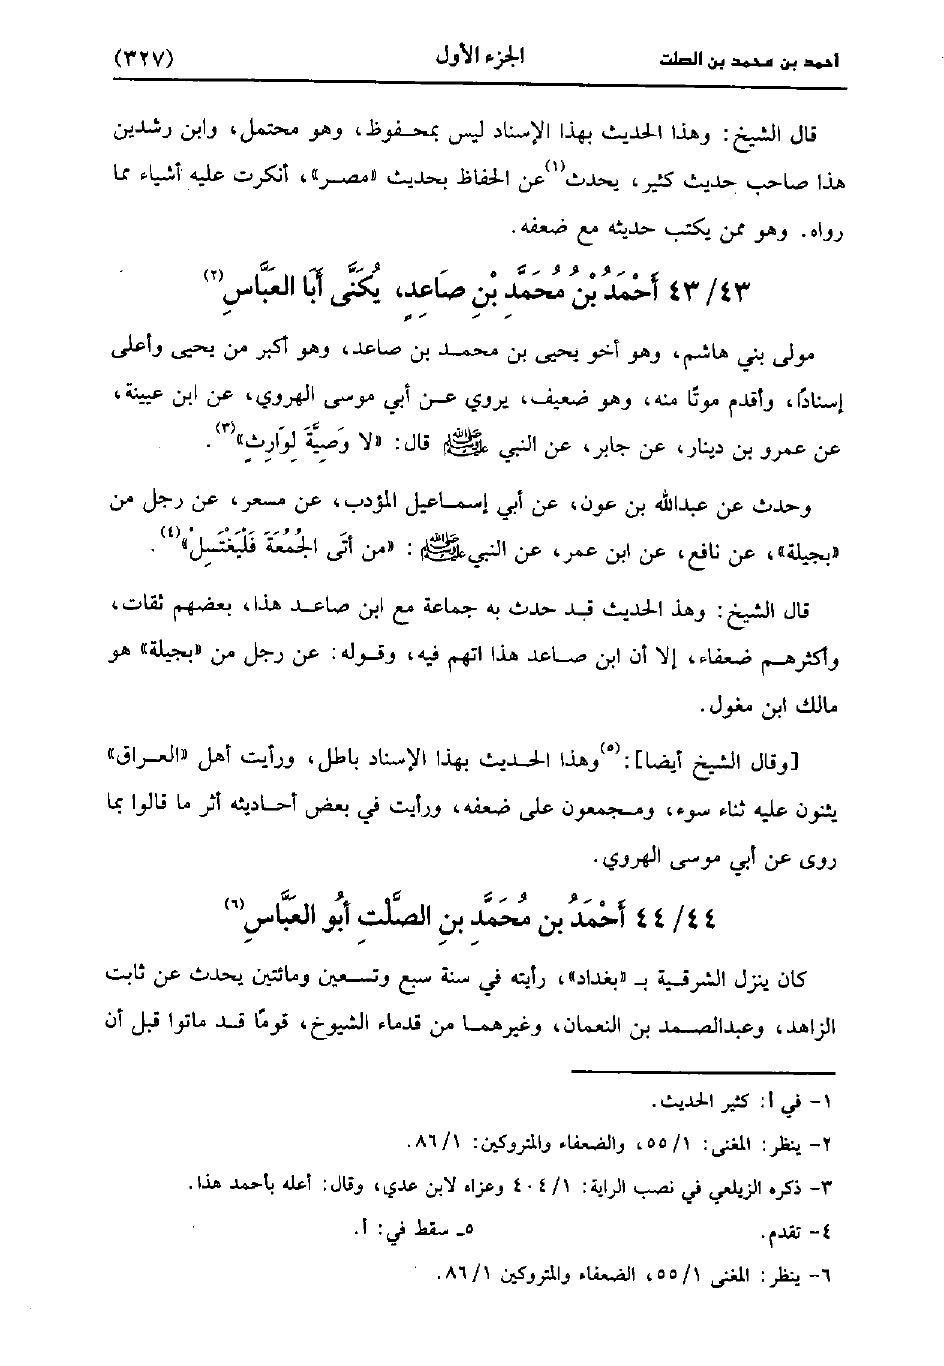 أحمد بن محمد بن الصلت الجزء الأول (٣٢٧)
قال الشيخ: وهذا الحديث بهذا الإسناد ليس بمحفوظ، وهو محتمل، وابن رشدين
هذا صاحب حديث كثير، يحدث(١) عن الحفاظ بحديث «مصر»، أنكرت عليه أشياء مما
رواه. وهو ممن يكتب حديثه مع ضعفه.
٤٣/ ٤٣ أَحْمَدُ بْنُ مُحَمَّدِ بْنِ صَاعِدٍ، يُكَنَّى أَبَا العَبَّاسِ(٢)
مولى بني هاشم، وهو أخو يحيى بن محمد بن صاعد، وهو أكبر من يحيى وأعلى
إسنادًا، وأقدم موتًا منه، وهو ضعيف، يروي عن أبي موسى الهروي، عن ابن عيينة،
عن عمرو بن دينار، عن جابر، عن النبي ﷺ قال: «لا وَصِيَّةَ لِوَارِثٍ»(٣).
وحدث عن عبدالله بن عون، عن أبي إسماعيل المؤدب، عن مسعر، عن رجل من
«بجيلة»، عن نافع، عن ابن عمر، عن النبي ﷺ : «من أَتَى الجُمُعَةَ فَلْيَغْتَسِلْ»(٤).
قال الشيخ: وهذ الحديث قد حدث به جماعة مع ابن صاعد هذا، بعضهم ثقات،
وأكثرهم ضعفاء، إلا أن ابن صاعد هذا اتهم فيه، وقوله: عن رجل من «بجيلة» هو
مالك ابن مغول.
[وقال الشيخ أيضا]:(٥) وهذا الحديث بهذا الإسناد باطل، ورأيت أهل «العراق»
يثنون عليه ثناء سوء، ومجمعون على ضعفه، ورأيت في بعض أحاديثه أثر ما قالوا بما
روى عن أبي موسى الهروي.
٤٤/ ٤٤ أَحْمَدُ بن مُحَمَّدِ بنِ الصَّلْتِ أبُو العَبَّاسِ(٦)
كان ينزل الشرقية بـ «بغداد»، رأيته في سنة سبع وتسعين ومائتين يحدث عن ثابت
الزاهد، وعبدالصمد بن النعمان، وغيرهما من قدماء الشيوخ، قومًا قد ماتوا قبل أن
١- في أ: كثير الحديث.
٢- ينظر: المغنى: ١/ ٥٥، والضعفاء والمتروكين: ١/ ٨٦.
٣- ذكره الزيلعي في نصب الراية: ١/ ٤٠٤ وعزاه لابن عدي، وقال: أعله بأحمد هذا.
٤- تقدم. ٥- سقط في: أ.
٦- ينظر: المغنى ١/ ٥٥، الضعفاء والمتروكين ١/ ٨٦.